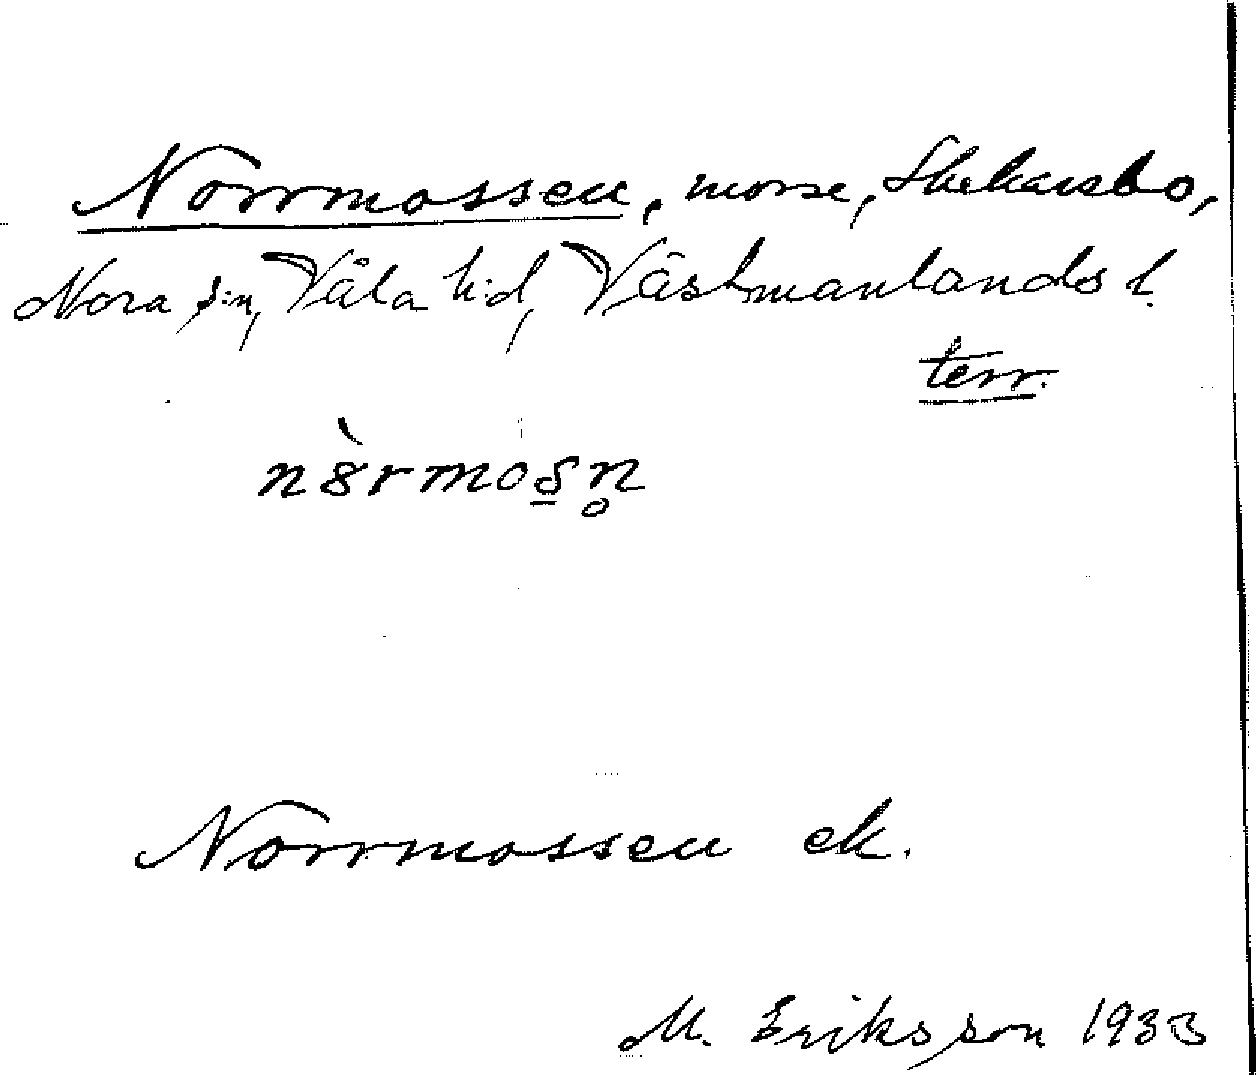 Norrmossen, mosse, Skekarsbo,
Nora s:n, Våla h:d, Västmanlands l.
terr.
Norrmossen ek.
M. Eriksson 1933